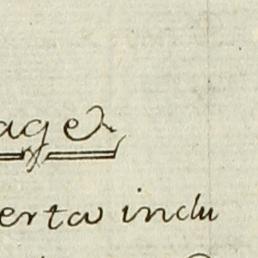 age
erta indu